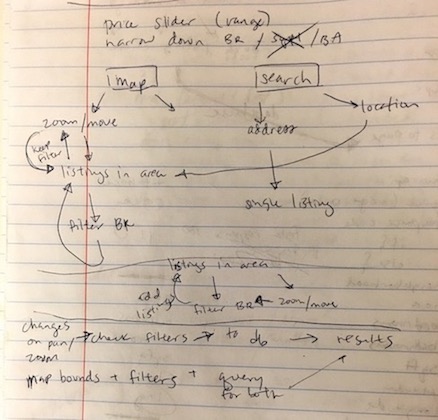 price slider (range)
narrow down BR / / BA
map
search
zoom/move
location
address
keep filter
listings in area
single listing
filter BR
listings in area
add listings
filter BR
zoom/move
changes on pan/zoom
check filters
to db
results
map bounds + filters +
query for both